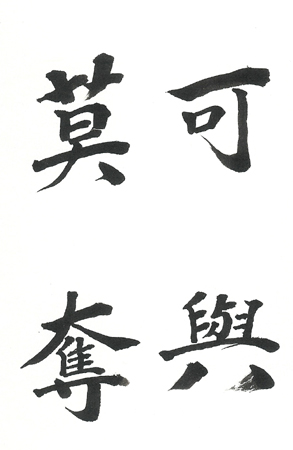 可與
莫奪